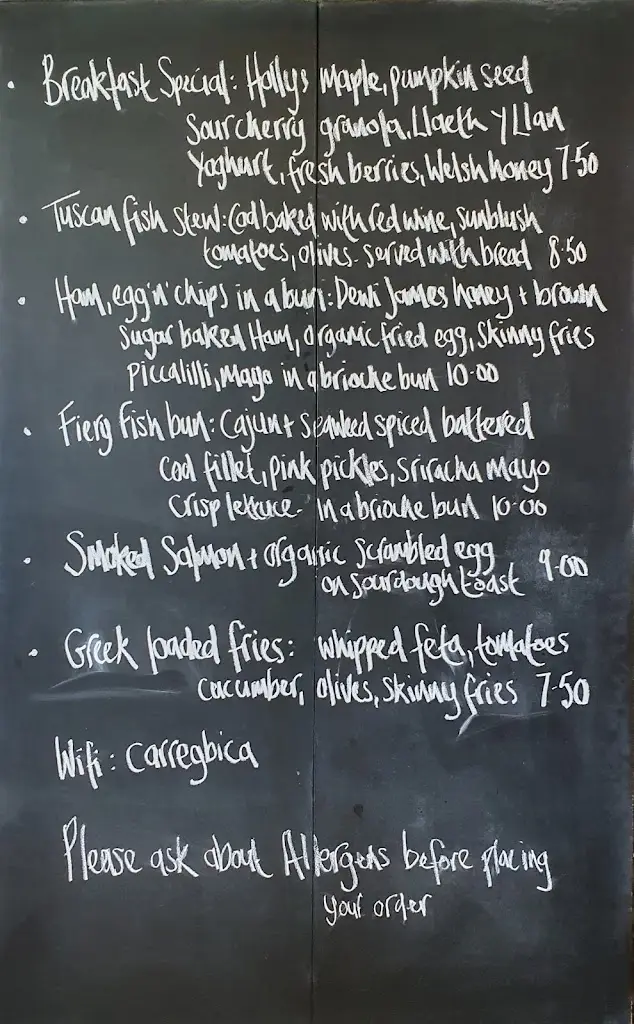 • Breakfast Special: Hollys maple, pumpkin seed
sour cherry granola, Llaeth y Llan
Yoghurt, fresh berries, Welsh honey 7.50
• Tuscan fish stew: Cod baked with red wine, sunblush
tomatoes, olives - served with bread 8.50
• Ham, egg 'n' chips in a bun: Dewi James honey + brown
sugar baked Ham, organic fried egg, skinny fries
piccalilli, mayo in a brioche bun 10.00
• Fiery fish bun: Cajun + seaweed spiced battered
cod fillet, pink pickles, sriracha mayo
crisp lettuce - in a brioche bun 10.00
• Smoked Salmon + organic scrambled egg
on sourdough toast 9.00
• Greek loaded fries: whipped feta, tomatoes
cucumber, olives, skinny fries 7.50
Wifi: carregbica
Please ask about Allergens before placing
your order